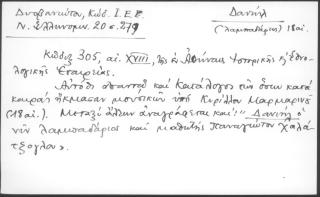 Δυοβουνιώτου, Κώδ. Ι.Ε.Ε.
Ν. Ἑλληνομν. 20 σ. 279
Δανιήλ
(λαμπαδάριος) 18αἰ.
Κώδιξ 305, αἰ. XVIII, τῆς ἐν Ἀθήναις Ἱστορικῆς & Ἐθνο-
λογικῆς Ἑταιρείας.
Αὐτόθι ἀπαντᾷ καὶ Κατάλογος τῶν ὅσοι κατὰ
καιρὸν ἤκμασαν μουσικῶν ὑπὸ Κυρίλλου Μαρμαρινοῦ
(18αἰ.). Μεταξὺ ἄλλων ἀναγράφεται καί: "Δανιὴλ ὁ
νῦν λαμπαδάριος καὶ μαθητὴς Παναγιώτου Χαλά-
τζογλου».